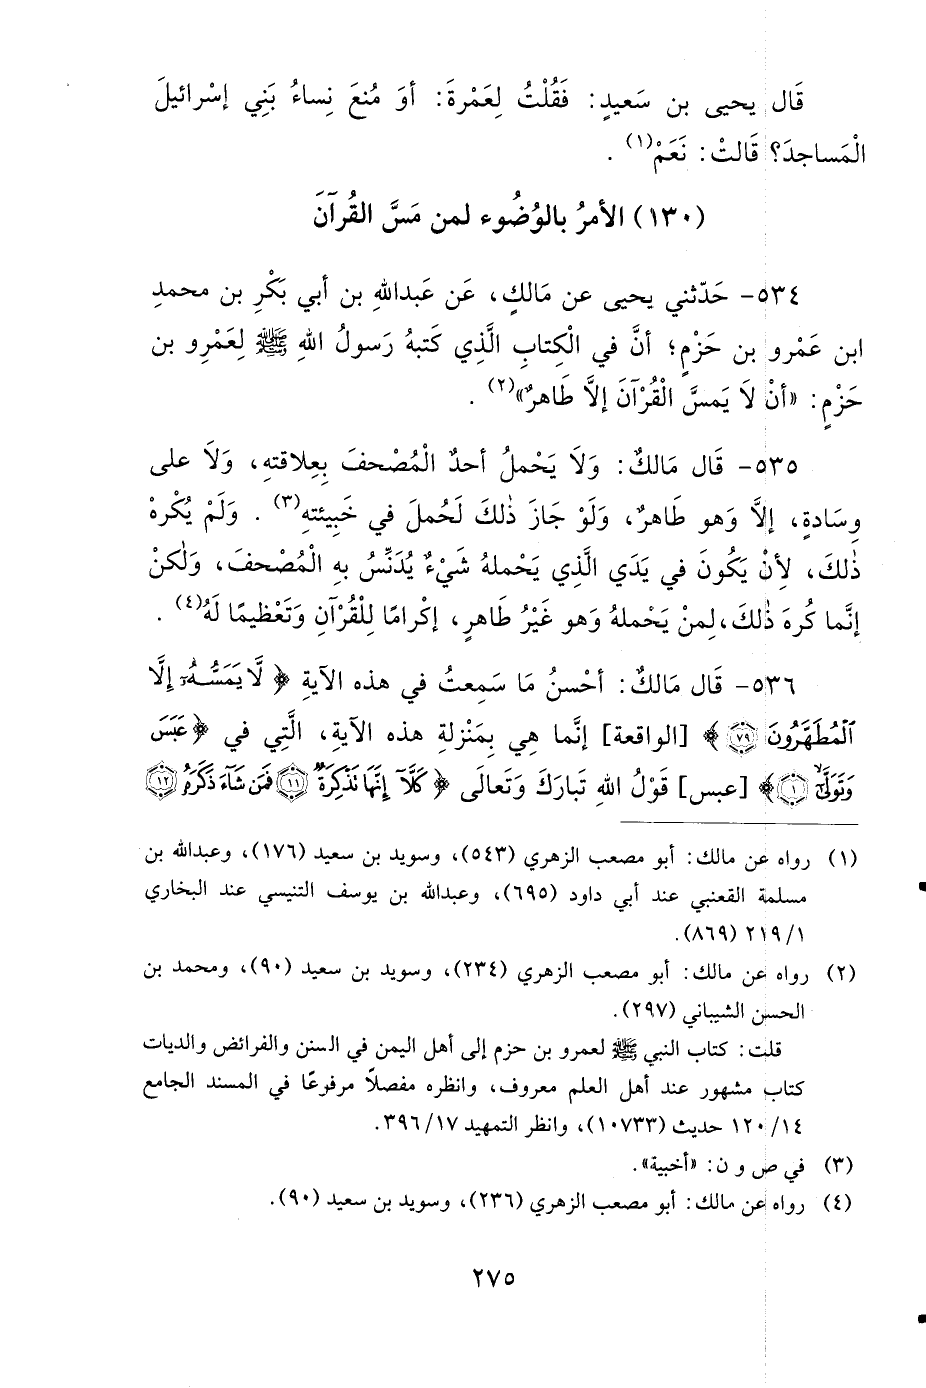 قَال يحيى بن سَعيدٍ: فَقُلْتُ لِعَمْرةَ: أوَ مُنعَ نِساءُ بَنِي إسْرائيلَ
الْمَساجدَ؟ قَالتْ: نَعَمْ(١) .
(١٣٠) الأمرُ بالوُضُوء لمن مَسَّ القُرآنَ
٥٣٤- حَدّثني يحيى عن مَالكٍ، عَن عَبداللهِ بن أبي بَكْرِ بن محمدِ
ابن عَمْرو بن حَزْمٍ؛ أنَّ في الْكِتابِ الَّذِي كَتبهُ رَسولُ اللهِ ﷺ لِعَمْرِو بن
حَزْمٍ: «أنْ لاَ يَمسَّ الْقُرْآنَ إلاَّ طَاهرٌ»(٢) .
٥٣٥- قَال مَالكٌ: وَلاَ يَحْملُ أحدٌ الْمُصْحفَ بِعِلاقتهِ، وَلاَ على
وِسَادةٍ، إلاَّ وَهو طَاهرٌ، وَلَو جَازَ ذٰلكَ لَحُملَ في خَبِيئتهِ(٣) . وَلَمْ يُكْرهْ
ذٰلكَ، لأنْ يَكُونَ في يَدَي الَّذِي يَحْملهُ شَيْءٌ يُدَنِّسُ بهِ الْمُصْحفَ، وَلٰكنْ
إنَّما كُرهَ ذٰلكَ،لِمنْ يَحْملهُ وَهو غَيْرُ طَاهرٍ، إكْرامًا لِلْقُرْآنِ وَتَعْظيمًا لَهُ(٤) .
٥٣٦- قَال مَالكٌ: أحْسنُ مَا سَمِعتُ في هذه الآيةِ ﴿ لَّا يَمَسُّهُۥٓ إِلَّا
ٱلْمُطَهَّرُونَ ٧٩ ﴾ [الواقعة] إنَّما هِي بِمَنْزلةِ هذه الآيةِ، الَّتِي في ﴿ عَبَسَ
وَتَوَلَّىٰٓ ١ ﴾ [عبس] قَوْلُ اللهِ تَبَاركَ وَتَعالَى ﴿ كَلَّآ إِنَّهَا تَذْكِرَةٌ ١١ فَمَن شَآءَ ذَكَرَهُۥ ١٢
(١) رواه عن مالك: أبو مصعب الزهري (٥٤٣)، وسويد بن سعيد (١٧٦)، وعبدالله بن
مسلمة القعنبي عند أبي داود (٦٩٥)، وعبدالله بن يوسف التنيسي عند البخاري
١/ ٢١٩ (٨٦٩).
(٢) رواه عن مالك: أبو مصعب الزهري (٢٣٤)، وسويد بن سعيد (٩٠)، ومحمد بن
الحسن الشيباني (٢٩٧).
قلت: كتاب النبي ﷺ لعمرو بن حزم إلى أهل اليمن في السنن والفرائض والديات
كتاب مشهور عند أهل العلم معروف، وانظره مفصلاً مرفوعًا في المسند الجامع
١٤/ ١٢٠ حديث (١٠٧٣٣)، وانظر التمهيد ١٧/ ٣٩٦.
(٣) في ص و ن: «أخبية».
(٤) رواه عن مالك: أبو مصعب الزهري (٢٣٦)، وسويد بن سعيد (٩٠).
٢٧٥